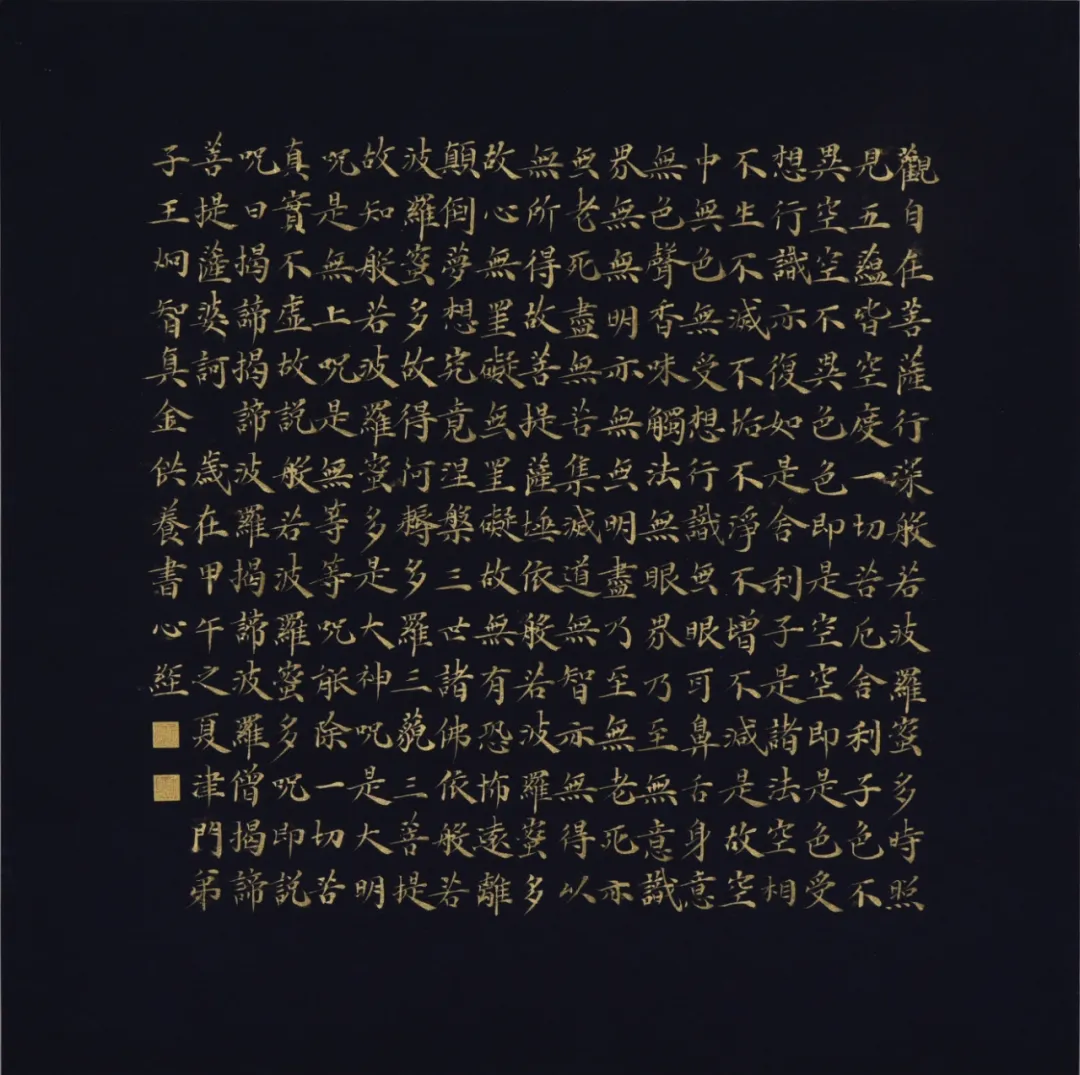 觀自在菩薩行深般若波羅蜜多時照
見五蘊皆空度一切苦厄舍利子色不
異空空不異色色即是空空即是色受
想行識亦復如是舍利子是諸法空相
不生不滅不垢不淨不增不減是故空
中無色無受想行識無眼耳鼻舌身意
無色聲香味觸法無眼界乃至無意識
界無無明亦無無明盡乃至無老死亦
無老死盡無苦集滅道無智亦無得以
無所得故菩提薩埵依般若波羅蜜多
故心無罣礙無罣礙故無有恐怖遠離
顛倒夢想究竟涅槃三世諸佛依般若
波羅蜜多故得阿耨多羅三藐三菩提
故知般若波羅蜜多是大神咒是大明
咒是無上咒是無等等咒能除一切苦
真實不虛故說般若波羅蜜多咒即說
咒曰揭諦揭諦波羅揭諦波羅僧揭諦
菩提薩婆訶 歲在甲午之夏津門弟
子王炯智真金供養書心經